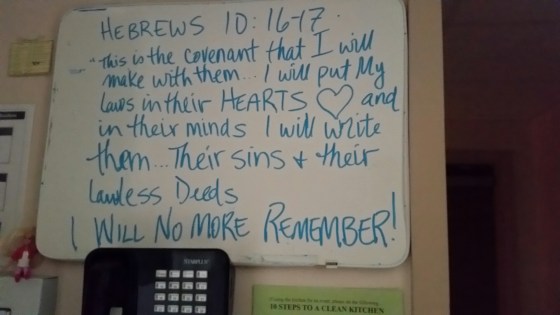 HEBREWS 10:16-17.
"This is the covenant that I will
make with them... I will put My
laws in their HEARTS ♡ and
in their minds I will write
them... Their sins + their
Lawless Deeds
I WILL NO MORE REMEMBER!
10 STEPS TO A CLEAN KITCHEN